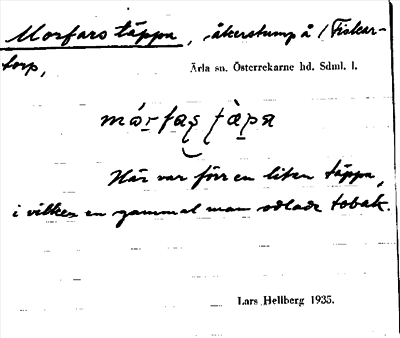 Morfars täppa, åkerstump å /Fiskar-
torp,
Ärla sn. Österrekarne hd. Sdml. l.
Här var förr en liten täppa,
i vilken en gammal man odlade tobak.
Lars Hellberg 1935.